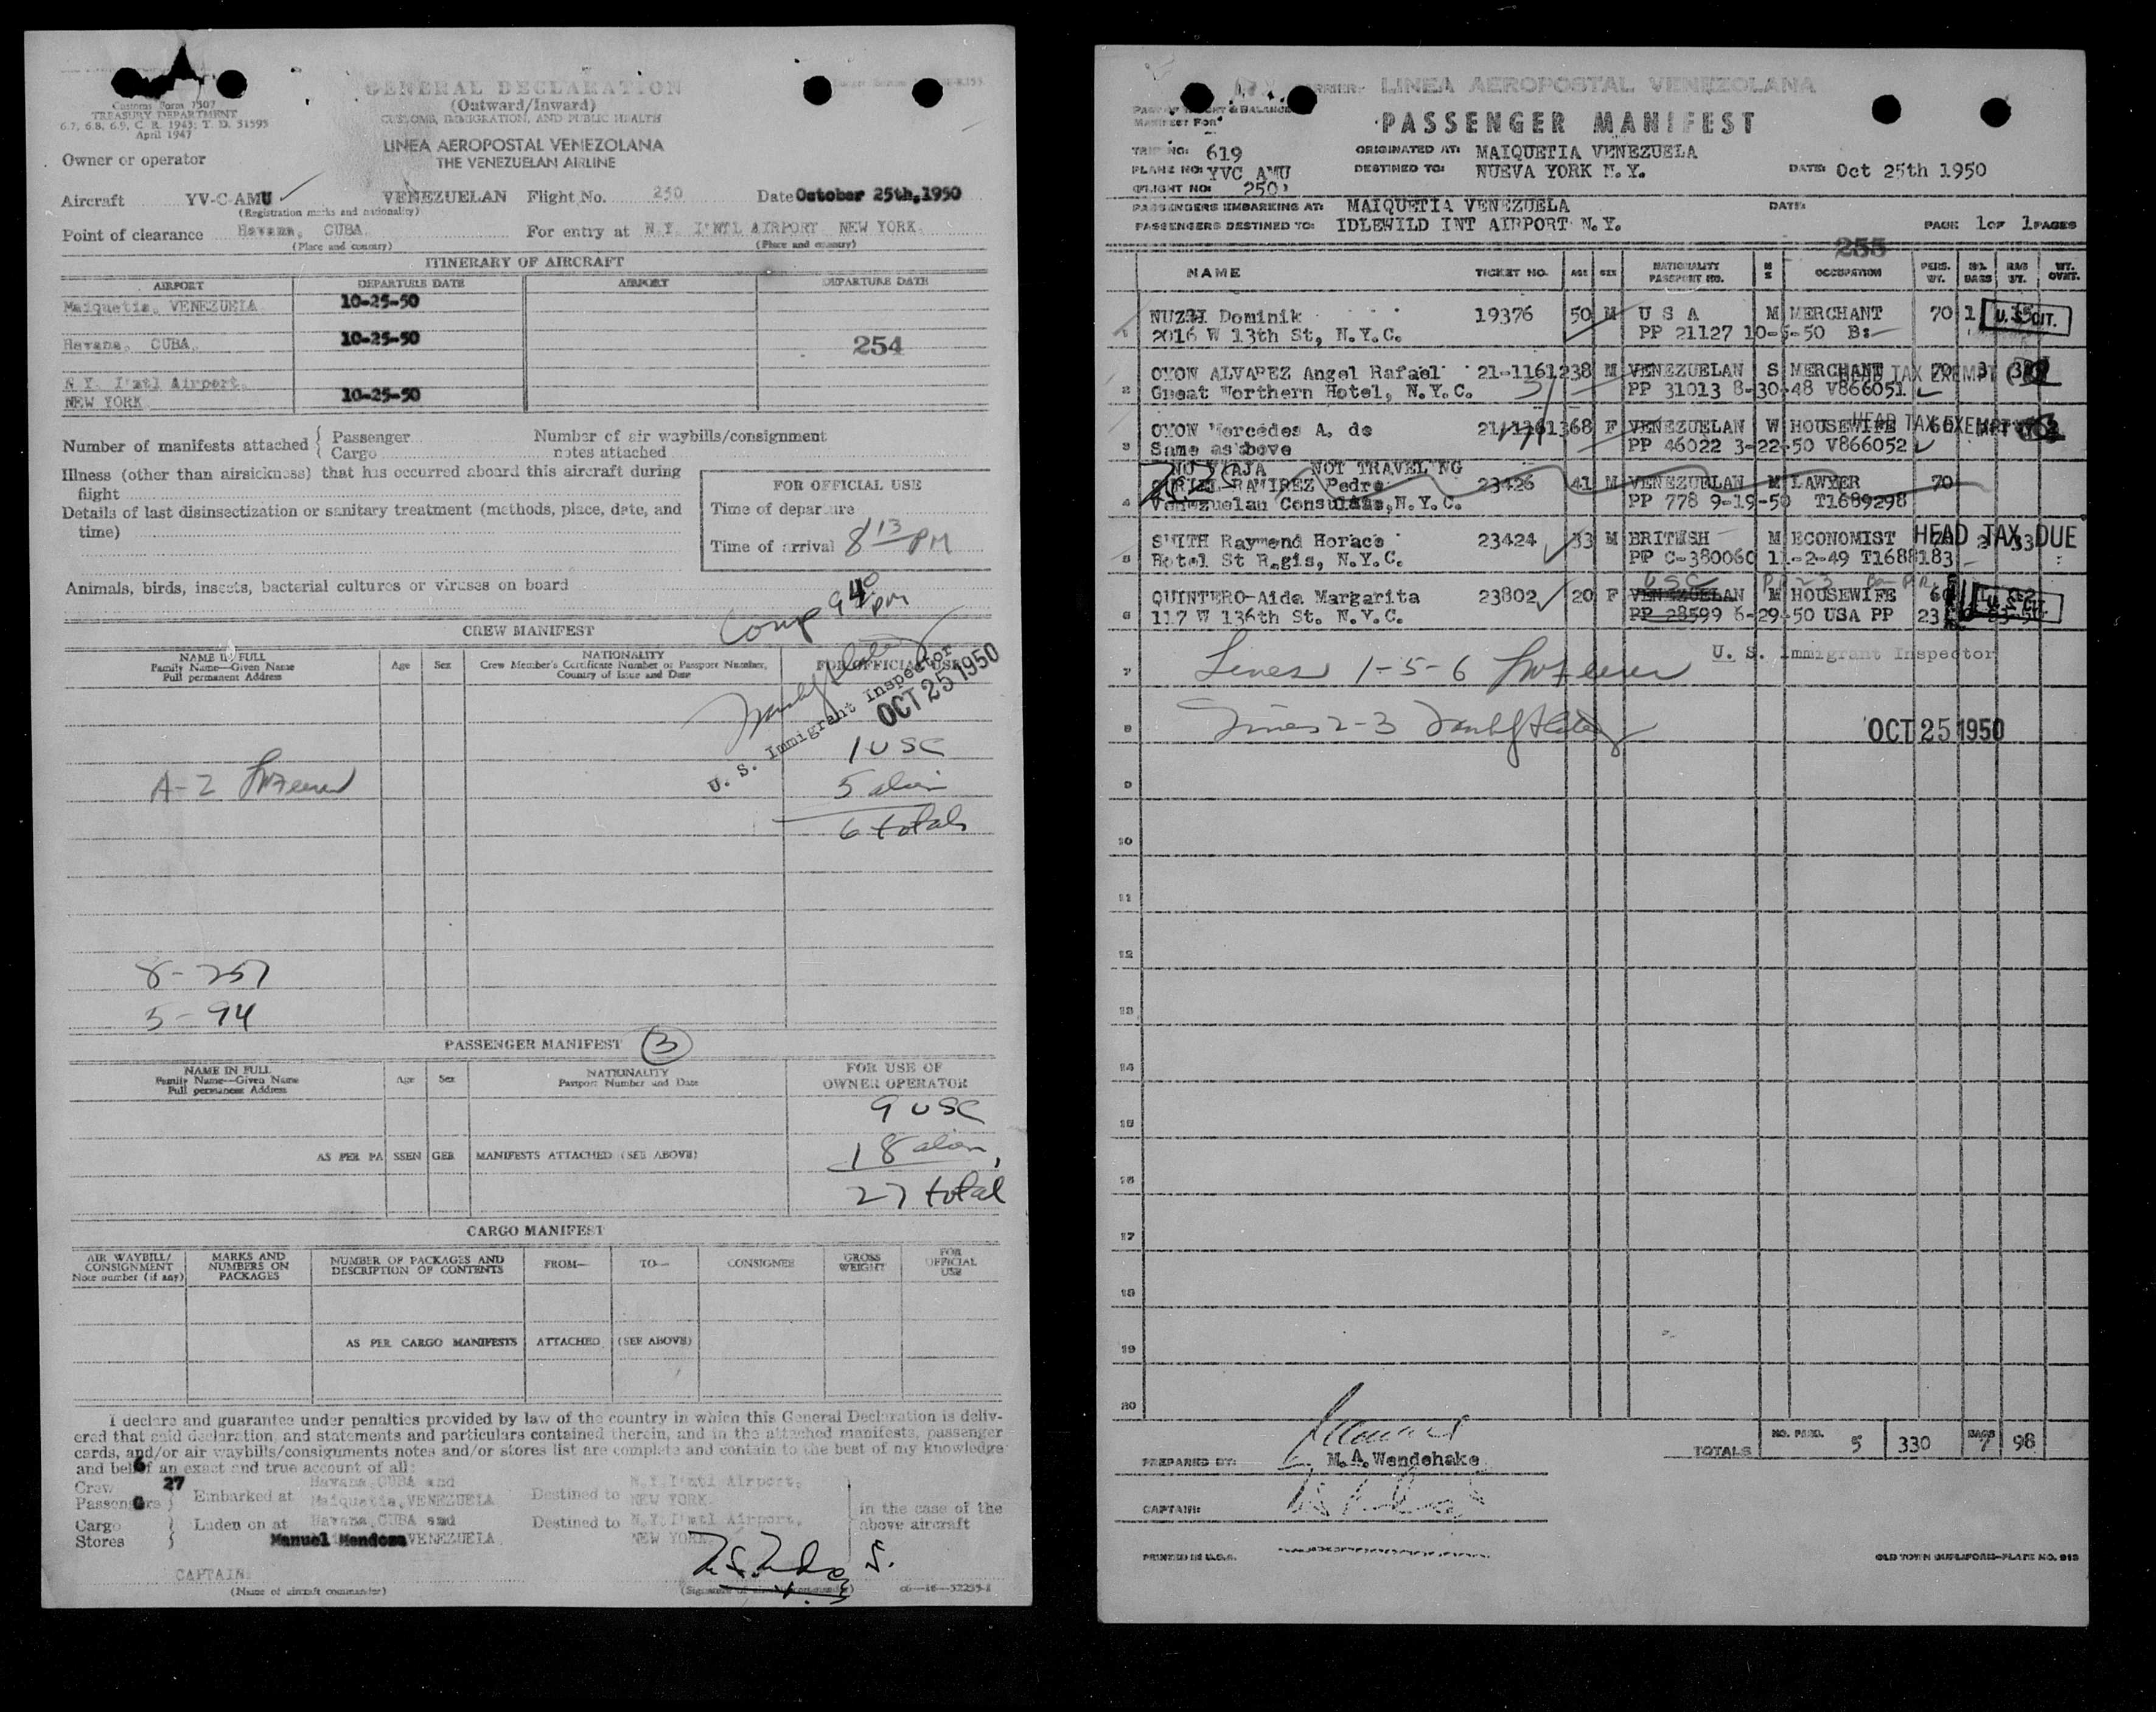 Customs Form 7507
TREASURY DEPARTMENT
6.7, 6.8, 6.9, C. R. 1943; T. D. 51595
April 1947
GENERAL DECLARATION
(Outward/Inward)
CUSTOMS, IMMIGRATION, AND PUBLIC HEALTH
LINEA AEROPOSTAL VENEZOLANA
THE VENEZUELAN AIRLINE
Owner or operator
Aircraft YV-C-AMU VENEZUELAN Flight No. 250 Date October 25th, 1950
(Registration marks and nationality)
Point of clearance Havana, CUBA. For entry at N.Y. I'NTL AIRPORT NEW YORK.
(Place and country) (Place and country)
ITINERARY OF AIRCRAFT
AIRPORT DEPARTURE DATE AIRPORT DEPARTURE DATE
Maiquetia, VENEZUELA 10-25-50
Havana, CUBA. 10-25-50
254
N.Y. I'ntl Airport.
NEW YORK 10-25-50
Number of manifests attached { Passenger Number of air waybills/consignment
Cargo notes attached
Illness (other than airsickness) that has occurred aboard this aircraft during
flight
Details of last disinsectization or sanitary treatment (methods, place, date, and
time)
FOR OFFICIAL USE
Time of departure
Time of arrival 8 13 PM
Animals, birds, insects, bacterial cultures or viruses on board
Comp 9 40 PM
CREW MANIFEST
NAME IN FULL
Family Name—Given Name
Full permanent Address
Age Sex
NATIONALITY
Crew Member's Certificate Number or Passport Number,
Country of Issue and Date
FOR OFFICIAL USE
U. S. Immigrant Inspector
OCT 25 1950
1 USC
5 alien
6 total
A-2
8-257
5-94
PASSENGER MANIFEST 3
NAME IN FULL
Family Name—Given Name
Full permanent Address
Age Sex
NATIONALITY
Passport Number and Date
FOR USE OF
OWNER OPERATOR
9 USC
AS PER PA SSEN GER MANIFESTS ATTACHED (SEE ABOVE) 18 alien
27 total
CARGO MANIFEST
AIR WAYBILL/
CONSIGNMENT
Note number (if any)
MARKS AND
NUMBERS ON
PACKAGES
NUMBER OF PACKAGES AND
DESCRIPTION OF CONTENTS
FROM— TO— CONSIGNEE
GROSS
WEIGHT
FOR
OFFICIAL
USE
AS PER CARGO MANIFESTS ATTACHED (SEE ABOVE)
I declare and guarantee under penalties provided by law of the country in which this General Declaration is deliv-
ered that said declaration, and statements and particulars contained therein, and in the attached manifests, passenger
cards, and/or air waybills/consignments notes and/or stores list are complete and contain to the best of my knowledge
and belief an exact and true account of all:
Crew 6 Havana, CUBA and N.Y. I'ntl Airport.
Passengers 27 } Embarked at Maiquetia, VENEZUELA Destined to NEW YORK. in the case of the
Cargo } Laden on at Havana, CUBA and Destined to N.Y. I'ntl Airport. above aircraft
Stores Manuel Mendoza VENEZUELA NEW YORK.
CAPTAIN
(Name of aircraft commander) (Signature of aircraft commander)
LINEA AEROPOSTAL VENEZOLANA
PASSENGER MANIFEST
TRIP NO: 619 ORIGINATED AT: MAIQUETIA VENEZUELA
PLANE NO: YVC AMU DESTINED TO: NUEVA YORK N.Y. DATE: Oct 25th 1950
FLIGHT NO: 250
PASSENGERS EMBARKING AT: MAIQUETIA VENEZUELA DATE:
PASSENGERS DESTINED TO: IDLEWILD INT AIRPORT N.Y. PAGE 1 OF 1 PAGES
255
NAME TICKET NO. AGE SEX NATIONALITY PASSPORT NO. M S OCCUPATION PERS. WT. NO. BAGS BAG WT. WT. OVWT.
1 NUZZI Dominik 19376 50 M U S A M MERCHANT 70 1 35 U.S. CIT.
2016 W 13th St, N.Y.C. PP 21127 10-5-50
2 OYON ALVAREZ Angel Rafael 21-11612 38 M VENEZUELAN S MERCHANT 70 3 HEAD TAX EXEMPT
Great Northern Hotel, N.Y.C. PP 31013 8-30-48 V866051
3 OYON Mercedes A. de 21-11613 68 F VENEZUELAN W HOUSEWIFE 60 HEAD TAX EXEMPT
Same as above PP 46022 3-22-50 V866052
NO VIAJA NOT TRAVELING
4 CURIEL-RAMIREZ Pedro 23426 41 M VENEZUELAN M LAWYER 70
Venezuelan Consulate, N.Y.C. PP 778 9-19-50 T1689298
5 SMITH Raymond Horace 23424 33 M BRITISH M ECONOMIST HEAD TAX DUE
Hotel St Regis, N.Y.C. PP C-380060 11-2-49 T1688183
USC
6 QUINTERO-Aida Margarita 23802 20 F VENEZUELAN M HOUSEWIFE 60 U.S. CIT.
117 W 136th St. N.Y.C. PP 28599 6-29-50 USA PP 23
7 Lines 1-5-6 U. S. Immigrant Inspector
8 Lines 2-3 OCT 25 1950
9
10
11
12
13
14
15
16
17
18
19
20
TOTALS NO. PASS. 5 330 BAGS 7 98
PREPARED BY: M.A. Wendehake
CAPTAIN:
PRINTED IN U.S.A. OLD TOWN DUPLIFORM—PLATE NO. 913